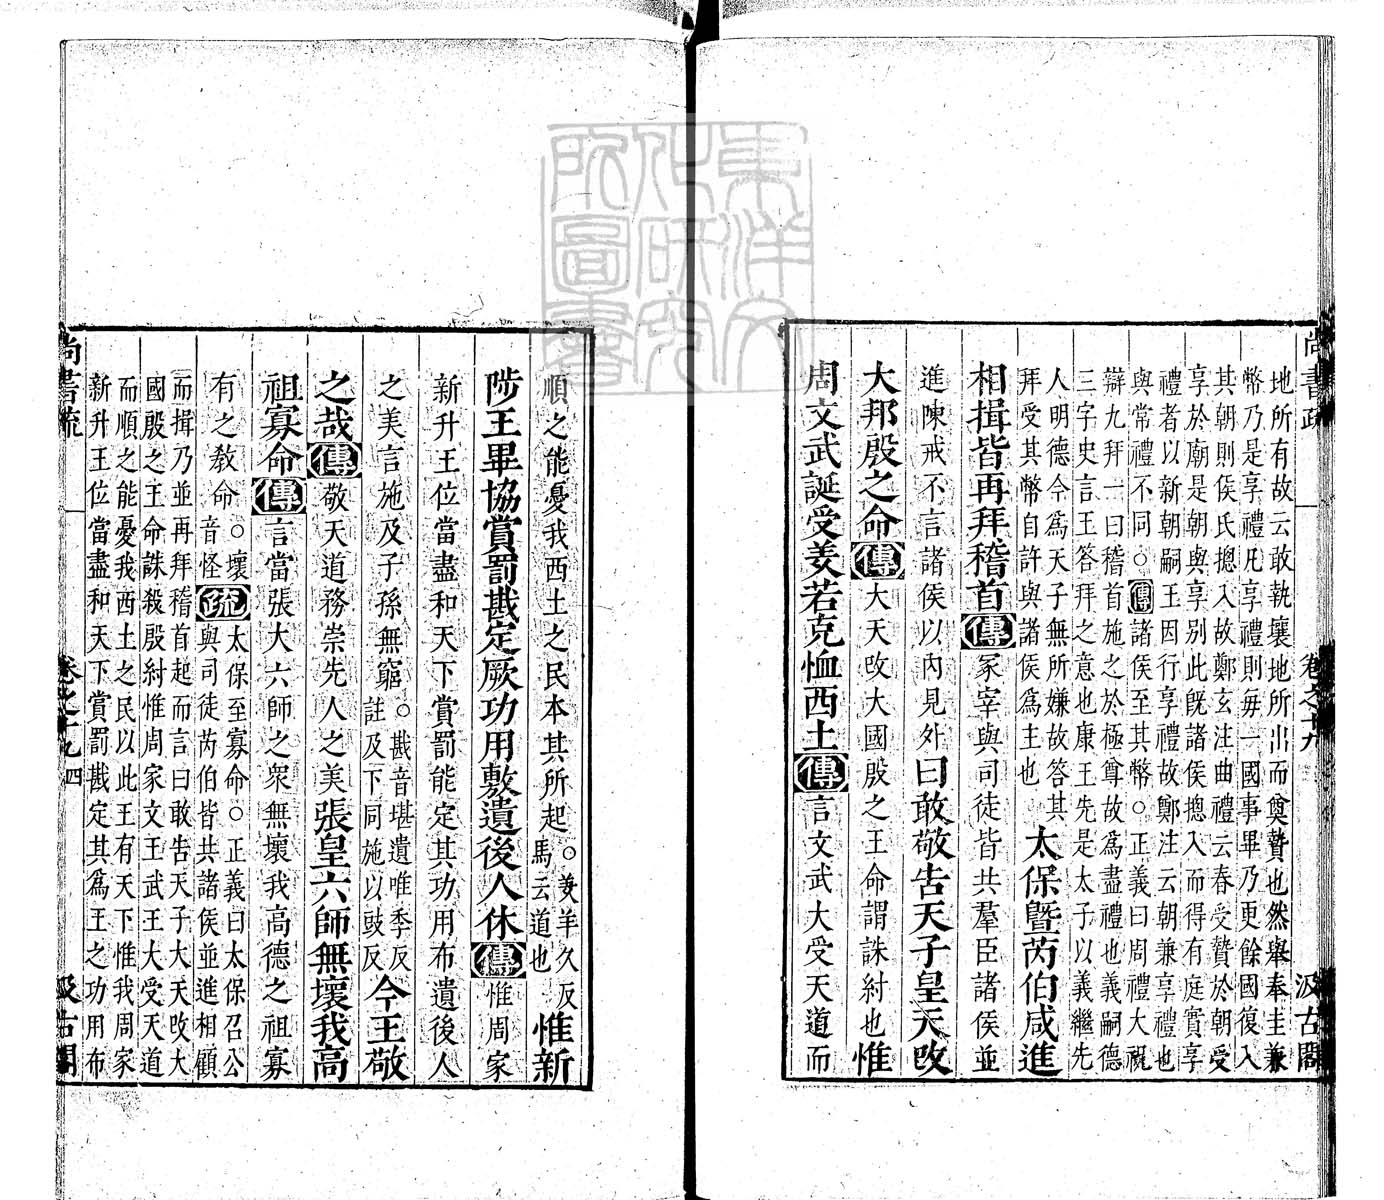 尚書疏 卷之十九 汲古閣
地所有故云敢執壤地所出而奠贄也然舉奉圭兼
幣乃是享禮凡享禮則每一國事畢乃更餘國復入
其朝則侯氏揔入故鄭玄注曲禮云春受贄於朝受
享於廟是朝與享別此旣諸侯揔入而得有庭實享
禮者以新朝嗣王因行享禮故鄭注云朝兼享禮也
與常禮不同○傳諸侯至其幣○正義曰周禮大祝
辯九拜一曰稽首施之於極尊故爲盡禮也義嗣德
三字史言王答拜之意也康王先是太子以義繼先
人明德今爲天子無所嫌故答其
拜受其幣自許與諸侯爲主也
太保暨芮伯咸進
相揖皆再拜稽首傳冢宰與司徒皆共羣臣諸侯並
進陳戒不言諸侯以內見外曰敢敬告天子皇天改
大邦殷之命傳大天改大國殷之王命謂誅紂也惟
周文武誕受羑若克恤西土傳言文武大受天道而
順之能憂我西土之民本其所起○羑羊久反
馬云道也
惟新
陟王畢協賞罰戡定厥功用敷遺後人休傳惟周家
新升王位當盡和天下賞罰能定其功用布遺後人
之美言施及子孫無窮○戡音堪遺唯季反
註及下同施以豉反
今王敬
之哉傳敬天道務崇先人之美張皇六師無壞我高
祖寡命傳言當張大六師之衆無壞我高德之祖寡
有之教命○壞
音怪
疏太保至寡命○正義曰太保召公
與司徒芮伯皆共諸侯並進相顧
而揖乃並再拜稽首起而言曰敢告天子大天改大
國殷之王命誅殺殷紂惟周家文王武王大受天道
而順之能憂我西土之民以此王有天下惟我周家
新升王位當盡和天下賞罰戡定其爲王之功用布
尚書疏 卷之十九 四 汲古閣
東洋文
化研究
所圖書